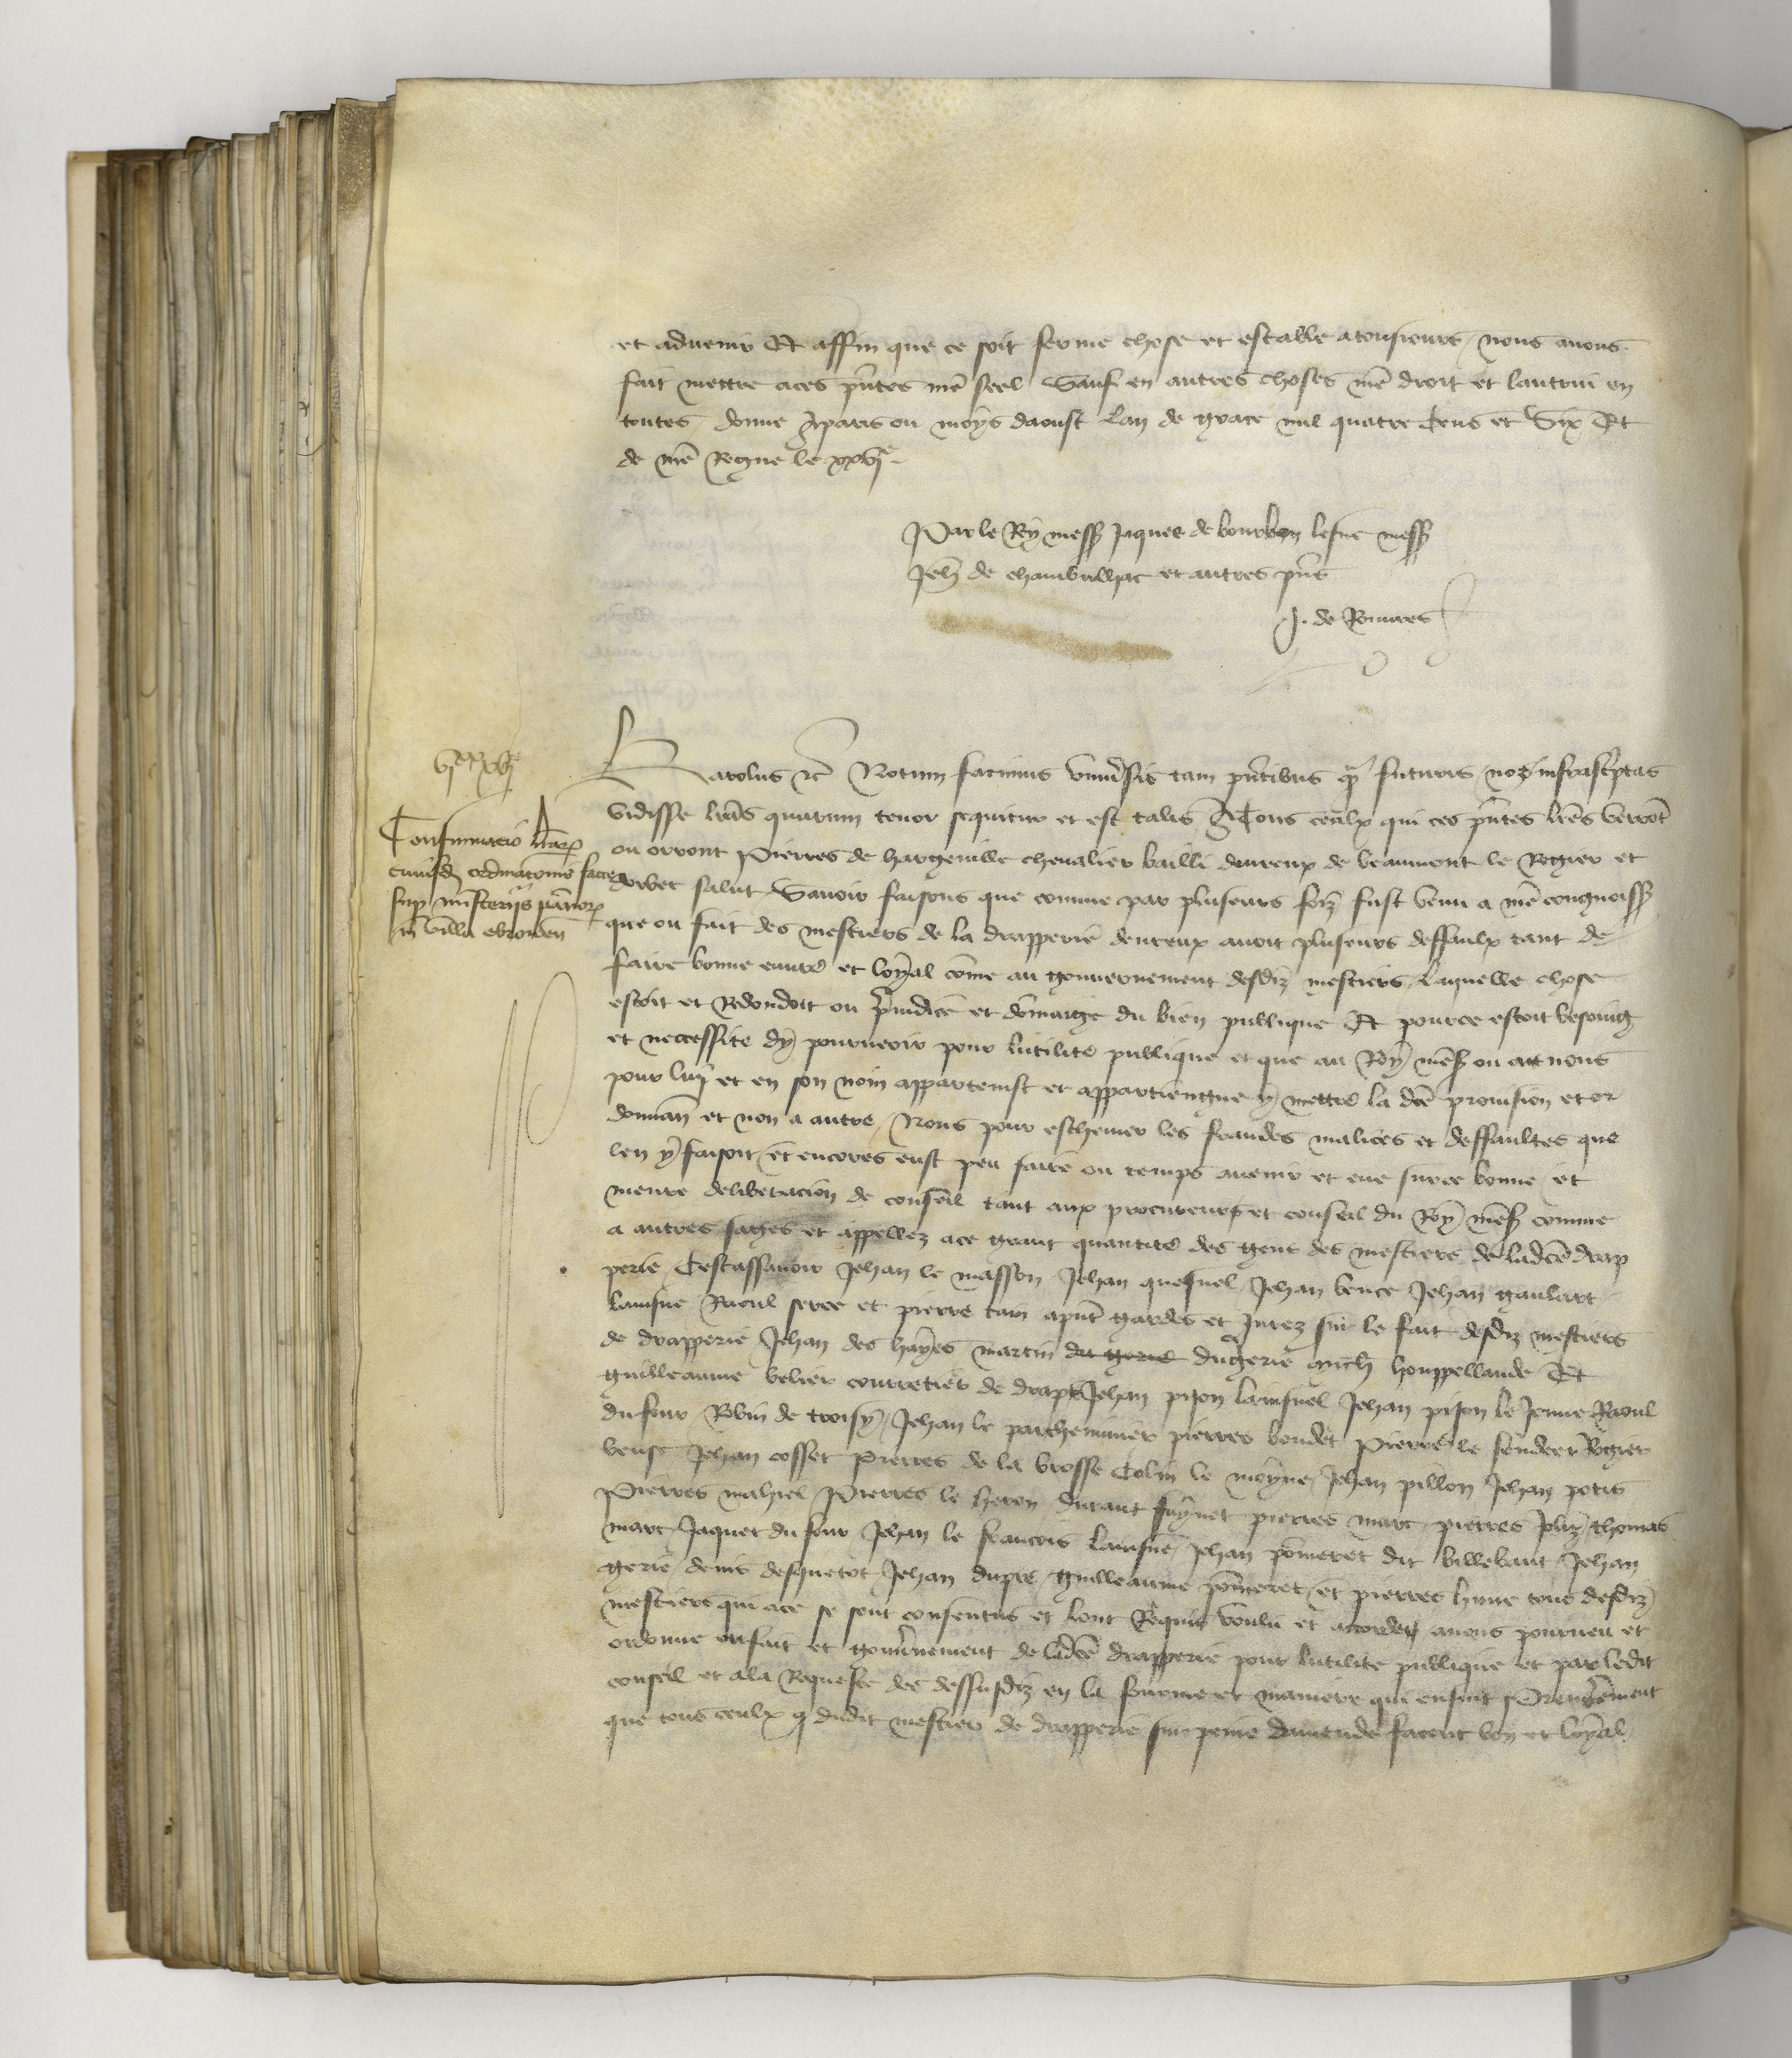 et advenir Et affin que ce soit ferme chose et estable a tousiours nous avons
fait mettre a ces pñtes nrẽ seel Sauf en autres choses nrẽ droit et lautrui en
toutes donne a paris ou moys daoust Lan de grace mil quatre cens et Six Et
de nrẽ Regne le xxvjᵉ
Par le Roy messȓ Jaques de bourbon lesne messȓ
Jehñ de chambrillhac et autres pñs
J. de Rouures
vjˣˣxvjᵉ
Confirmacio lrãrꝝ
cuiusdã ordinacionis facte
sup mĩsteriis pãnorꝝ
in villa ebroicen̄
Karolus ⁊c̃ Notum facimus univ̾sis tam pñtibus q̃ futuris nos infrascr̾ptas
vidisse lrãs quarum tenor sequitur et est talis A Tous ceulx qui ces pñtes lrẽs verrõt
ou orront Pierres de hargeville chevalier bailli deureux de beaumont le Rogier et
dorbec salut Savoir faisons que comme par pluseurs foiz fust venu a nrẽ congnoissȓ
que ou fait des mestiers de la drapperie deureux avoit pluseurs deffaulx tant de
faire bonne euvre et loyal cõme au gouvernement desdiz mestiers Laquelle chose
estoit et Redondoit ou p̾iudice et dõmaige du bien publique Et pource estoit besoing
et necessite dy pourveoir pour lutilite publique et que au Roy nrẽ sȓ ou a nous
pour luy et en son nom appartenist et appartiengne y mettre la dc̃e provision et or
donnan̄ et non a autre Nous pour eschever les fraudes malices et deffaultes que
len y faisoit et encores eust peu faire ou temps avenir et eue sur ce bonne et
meure deliberacion de conseil tant aux procureurs et conseil du Roy nrẽ sȓ comme
a autres sages et appellez a ce grant quantite des gens des mestiers de ladc̃e drap
perie Cestassavoir Jehan le masson Jehan quesnel Jehan vence Jehan gaulart
lainsne Raoul seree et pierre tam apñt gardes et Jurez sur le fait desdiz mestiers
de drapperie Jehan des hayes martin du gerie dugerie mich̃ houppellande Et
guilleaume velier courretier de draps Jehan pijon lainsnel Jehan pijon le Jenne Raoul
du four Robin de troisy Jehan le parcheminier pierres boudet Pierre le sendeer Rogier
veuse Jehan cosset Pierres de la brosse Colin le moyne Jehan pillon Jehan potis
Pierres mahiel Pierres le heron durant faynet pierres marc pierres Joliz thomas
marc Jaquet du four Jehan le francois lainsne Jehan põmeret dit billebaut Jehan
gerie denis desquetot Jehan dupre guilleaume põmeret et pierres hune tous desdiz
mestiers qui a ce se sont consentus et lont Requis voulu et accorde avons pourveu et
ordonne ou fait et gouv̾nement de ladc̃e drapperie pour lutilite publique et par ledit
conseil et a la Requeste des dessusdiz en la fourme et maniere qui ensuit Premierement
que tous ceulx q̃ dudit mestier de drapperie sur peine damende facent bon et loyal